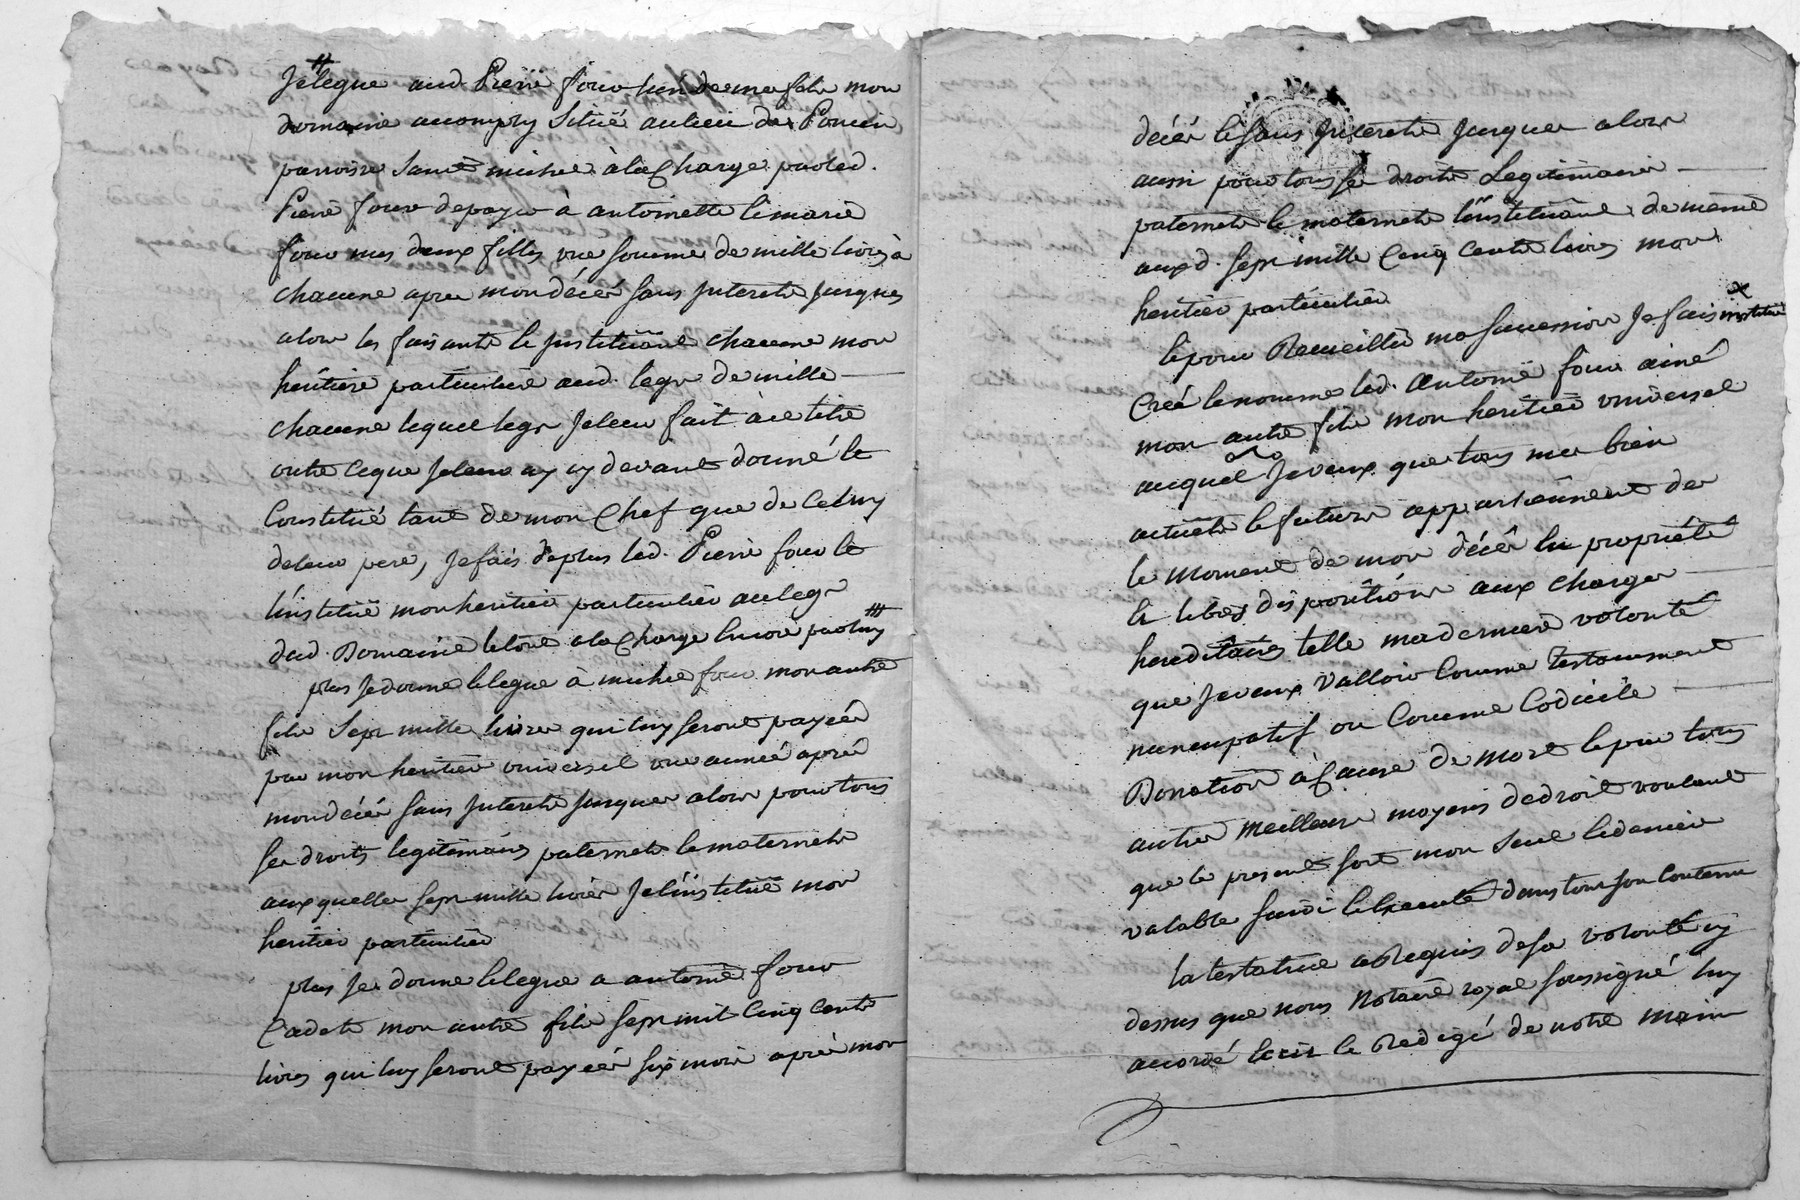 Je legue aud. Pierre foux l'un de mes fils mon
domaine accomply Situé au lieu de Poncin
parroisse Saint michel à la Charge par led.
Pierre foux de payer à antoinette et marie
foux mes deux filles une somme de mille livres à
chacune apres mon décés sans Interets jusques
alors les faisants et Instituant chacune mon
héritiere particuliere aud. legs de mille
chacune lequel legs Je leur fait à ce titre
outre ce que Je leur ay cy devant donné et
Constitué tant de mon Chef que de Celuy
de leur pere, Je fais de plus led. Pierre foux et
l'institue mon heritier particulier au legs
dud. Domaine et ce à la Charge encore par luy
plus Je donne et legue à michel foux mon autre
fils Sept mille livres qui luy seront payées
par mon heritier universel une année aprés
mon décés sans Interets jusques alors pour tous
ses droits legitimaires paternels et maternels
auxquelles sept mille livres Je l'institue mon
heritier particulier
plus Je donne et legue a antoine foux
Cadet mon autre fils sept mil Cinq Cents
livres qui luy seront payées six mois aprés mon
décés et sans Interets jusques alors
aussi pour tous ses droits Legitimaires
paternels et maternels l'instituant de même
auxd. sept mille Cinq Cents livres mon
heritier particulier
et pour Recueillir ma succession Je fais institue
Creé et nomme led. Antoine foux ainé
mon autre fils mon heritier universel
auquel Je veux que tous mes biens
actuels et futurs appartiennent des
le moment de mon décés en propriété
et libres dispositions aux charges
hereditaires telle ma derniere volonté
que Je veux Valloir Comme Testament
nuncupatif ou Comme Codicile
Donation à Cause de mort et par tous
autres meilleurs moyens de droit voulant
que le present soit mon seul et dernier
valable suivi et Executé dans tout son Contenu
la testatrice a Requis de sa volonté cy
dessus que nous Notaire royal soussigné luy
accordé Ecrit et Redigé de notre main